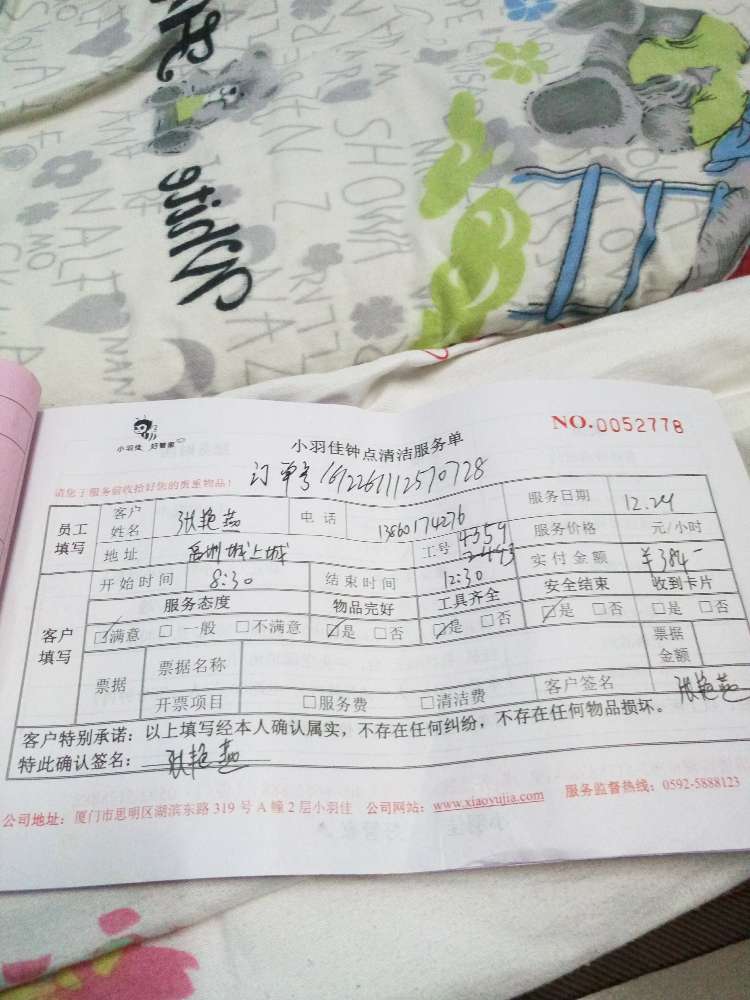 white
小羽佳 好管家
小羽佳钟点清洁服务单
NO.0052778
请您于服务前收拾好您的贵重物品!
订单号 1612261112570728
员工填写 客户姓名 张艳燕 电话 13860174276 服务日期 12.24
地址 禹洲城上城 工号 4359 2493 服务价格 元/小时
客户填写 开始时间 8:30 结束时间 12:30 实付金额 ¥384-
服务态度 物品完好 工具齐全 安全结束 收到卡片
☑满意 □一般 □不满意 ☑是 □否 ☑是 □否 ☑是 □否 □是 □否
票据 票据名称 票据金额
开票项目 □服务费 □清洁费 客户签名 张艳燕
客户特别承诺:以上填写经本人确认属实,不存在任何纠纷,不存在任何物品损坏。
特此确认签名: 张艳燕
公司地址:厦门市思明区湖滨东路 319 号 A 幢 2 层小羽佳 公司网站:www.xiaoyujia.com 服务监督热线:0592-5888123